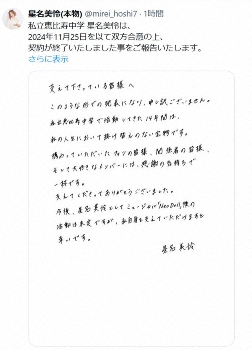 星名美怜(本物) @mirei_hoshi7 · 1時間
私立恵比寿中学 星名美怜は、
2024年11月25日を以て双方合意の上、
契約が終了いたしました事をご報告いたします。
さらに表示
支えて下さっている皆様へ
このような形での発表になり、申し訳ございません。
私立恵比寿中学で活動してきた14年間は、
私の人生において掛け替えのない宝物です。
携わっていただいたファンの皆様、関係者の皆様、
そして大好きなメンバーには、感謝の気持ちで
一杯です。
支えてくださってありがとうございました。
今後、星名美怜としてミュージカル「Neo Doll」後の
活動は未定ですが、
幸いです。
星名美怜